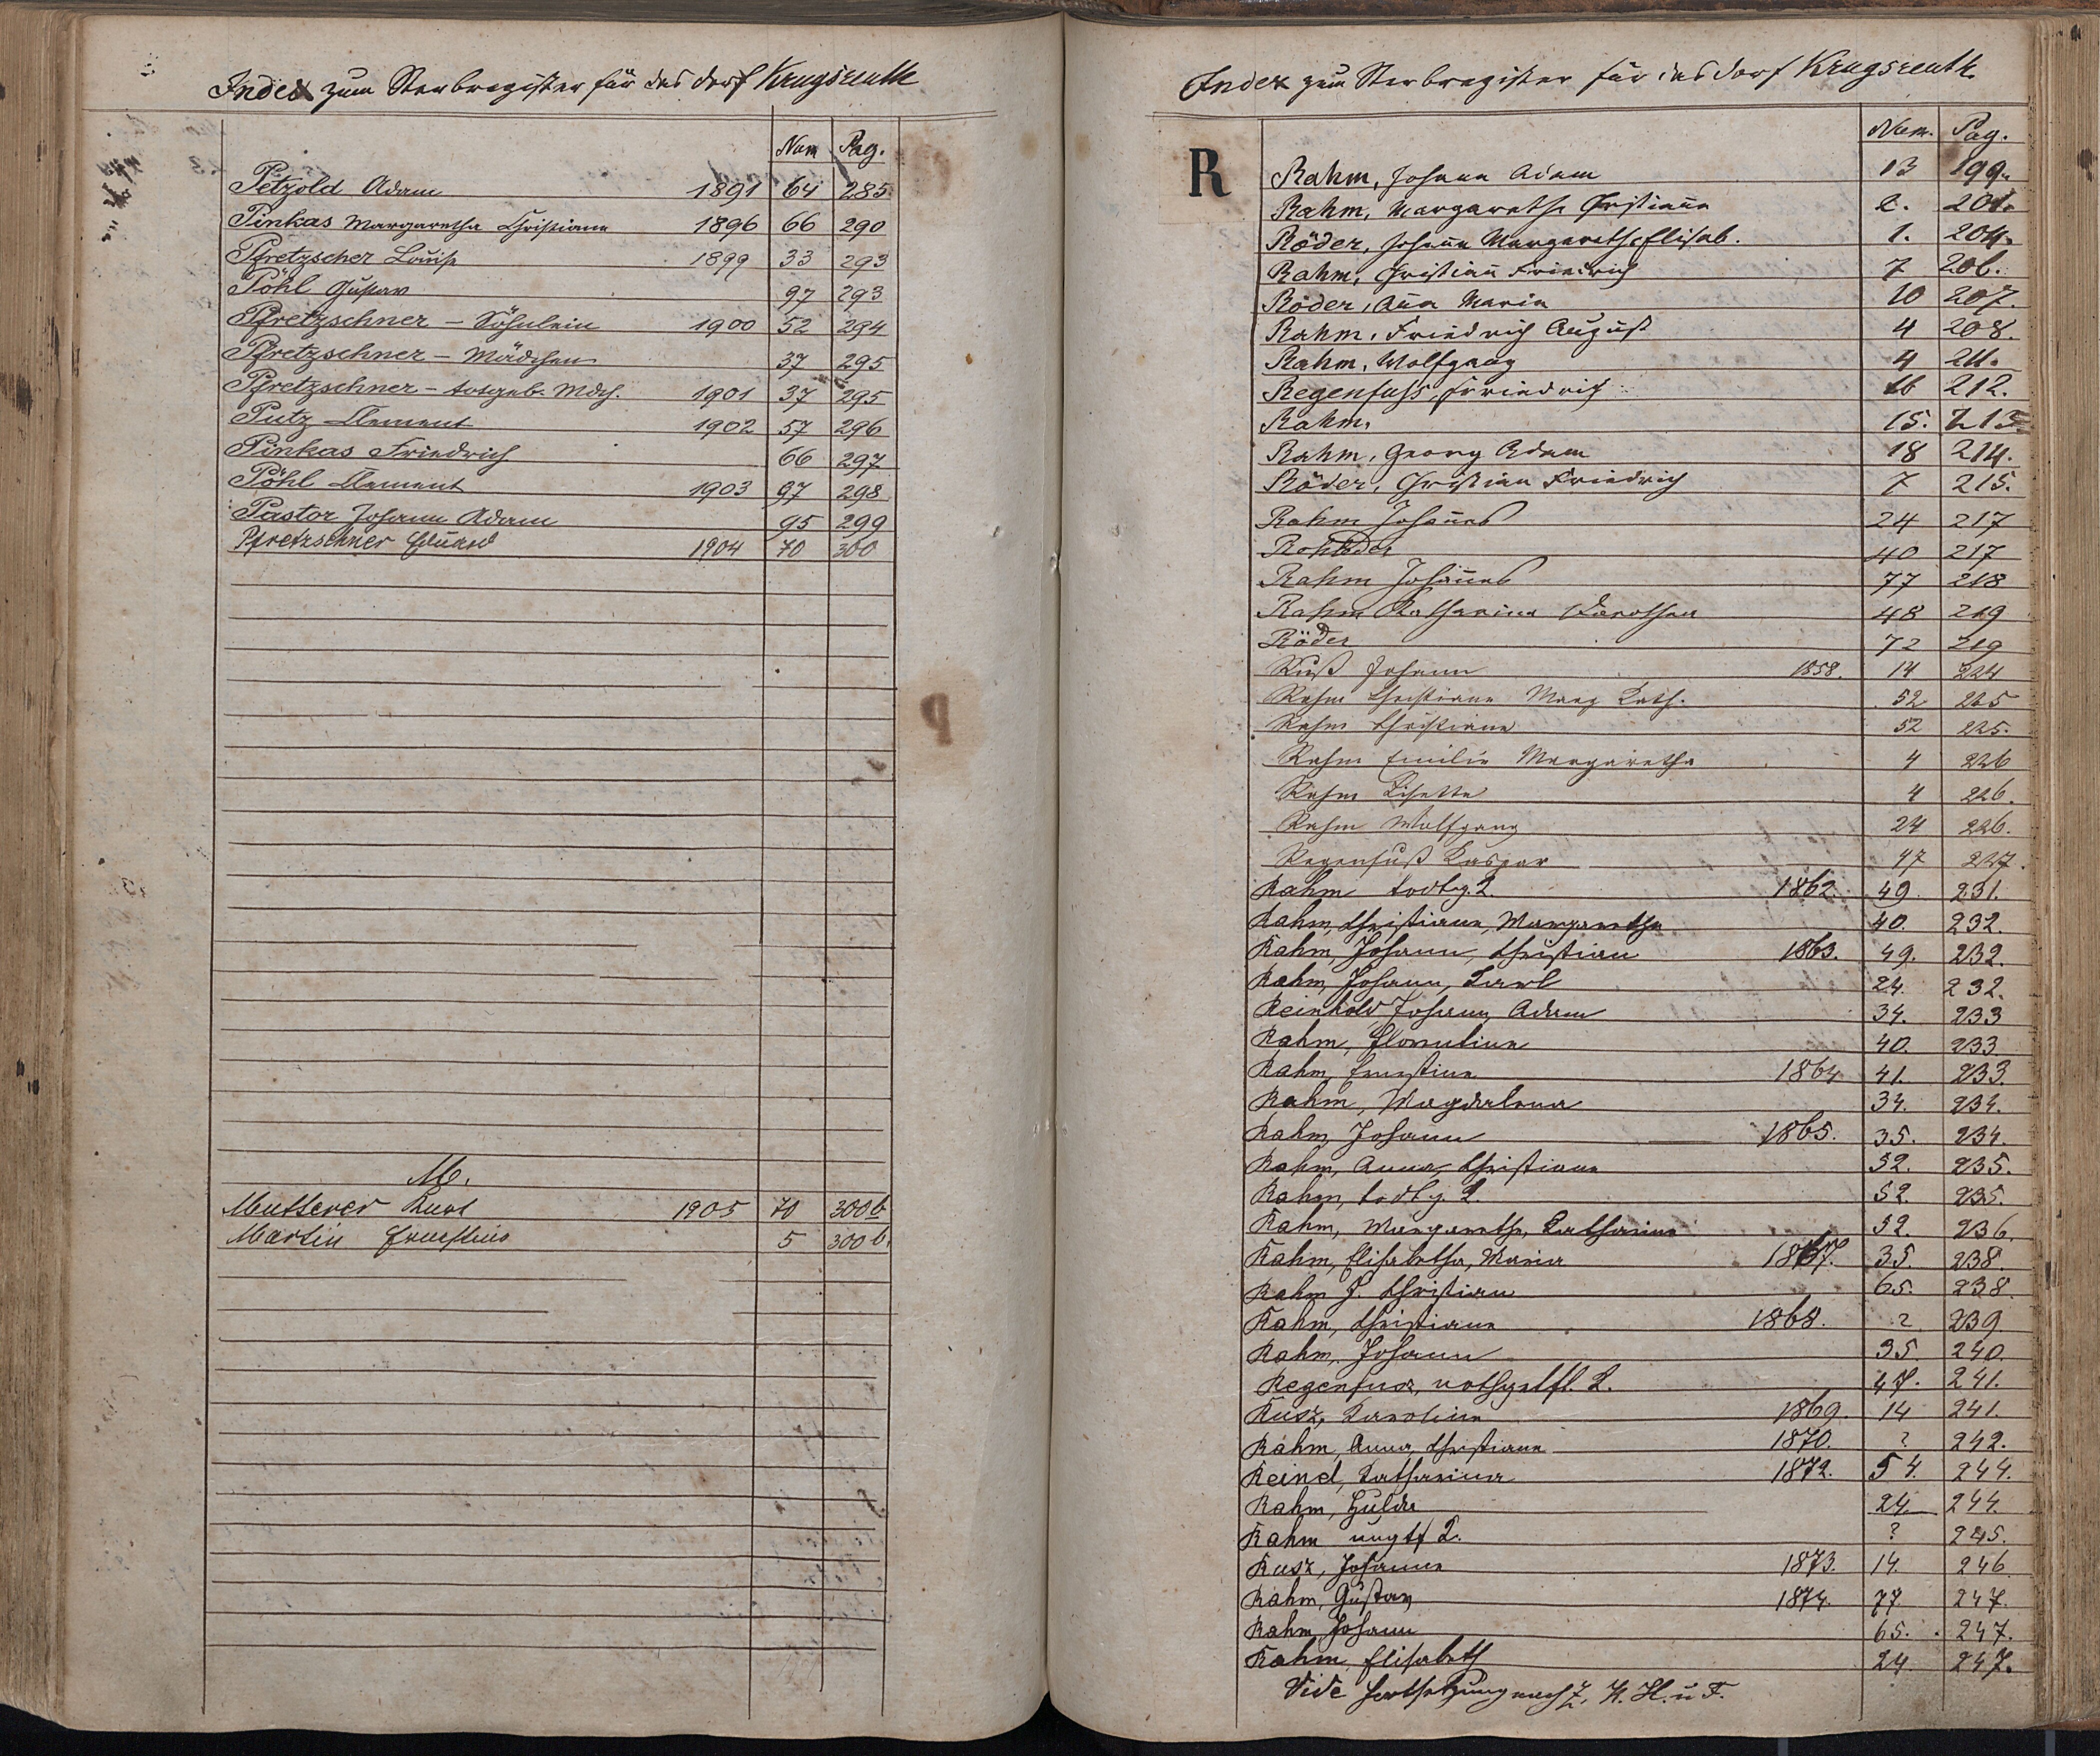 Index zum Sterbregister für das Dorf Krugsreuth
Num Pag.
Petzold Adam 1891 64 285
Pinkas Margaretha Christiana 1896 66 290
Pfretzscher Louise 1899 33 293
Pöhl Gustav 97 293
Pfretzschner – Söhnlein 1900 52 294
Pfretzschner – Mädchen 37 295
Pfretzschner – todgeb. Mdch. 1901 37 295
Putz Clement 1902 57 296
Pinkas Friedrich 66 297
Pöhl Clement 1903 97 298
Pastor Johann Adam 95 299
Pfretzschner Eduard 1904 70 300
M.
Mutterer Karl 1905 70 300b
Martin Ernestine 5 300b.
Index zum Sterbregister für das Dorf Krugsreuth
Num. Pag.
R
Rahm, Johann Adam 13 199.
Rahm, Margaretha Christiana 2. 201.
Röder, Johanna Margaretha Elisab. 1. 204.
Rahm, Christian Friedrich 7 206.
Röder, Anna Maria 10 207.
Rahm, Friedrich August 4 208.
Rahm, Wolfgang 4 211.
Regenfuss, Friedrich 16 212.
Rahm, 15. 213.
Rahm, Georg Adam 18 214.
Röder, Christian Friedrich 7 215.
Rahm Johannes 24 217
40 217
Rahm Johannes 77 218
Rahm Katharina Dorothea 48 219
Röder 72 219
Ruß Johann 1858. 14 224
Rahm Christiana Marg Kath. 52 225
Rahm Christiana 52 225.
Rahm Emilie Margaretha 4 226
Rahm Lisette 4 226.
Rahm Wolfgang 24 226.
Regenfuß Kaspar 47 227.
Rahm todtg. 1862. 49 231.
Rahm, Christiana, Margaretha 40. 232.
Rahm, Johann, Christian 1863. 49. 232.
Rahm, Johann, Karl 24. 232.
Reinhold Johann Adam 34. 233
Rahm, Florentine 40. 233
Rahm, Ernestine 1864 41. 233.
Rahm, Magdalena 34. 234.
Rahm, Johann 1865. 35. 234.
Rahm, Anna, Christiana 52. 235.
Rahm, todtg. 52. 235.
Rahm, Margaretha, Katharina 52. 236.
Rahm, Elisabetha, Maria 1867. 35. 238.
Rahm J. Christian 65. 238.
Rahm, Christiana 1868. ? 239
Rahm, Johann 35. 240.
Regenfus, nothgetft. K. 47. 241.
Rusz, Karoline 1869. 14 241.
Rahm, Anna, Christiana 1870. ? 242.
Reinel, Katharina 1872. 54. 244.
Rahm, Hulda 24. 244.
Rahm ungtf K. ? 245.
Rusz, Johanna 1873. 14. 246
Rahm, Gustav 1874. 77 247.
Rahm, Johann 65. 247.
Rahm, Elisabeth 24. 247.
Vide Fortsetzung nach Z, N. H. u. F.